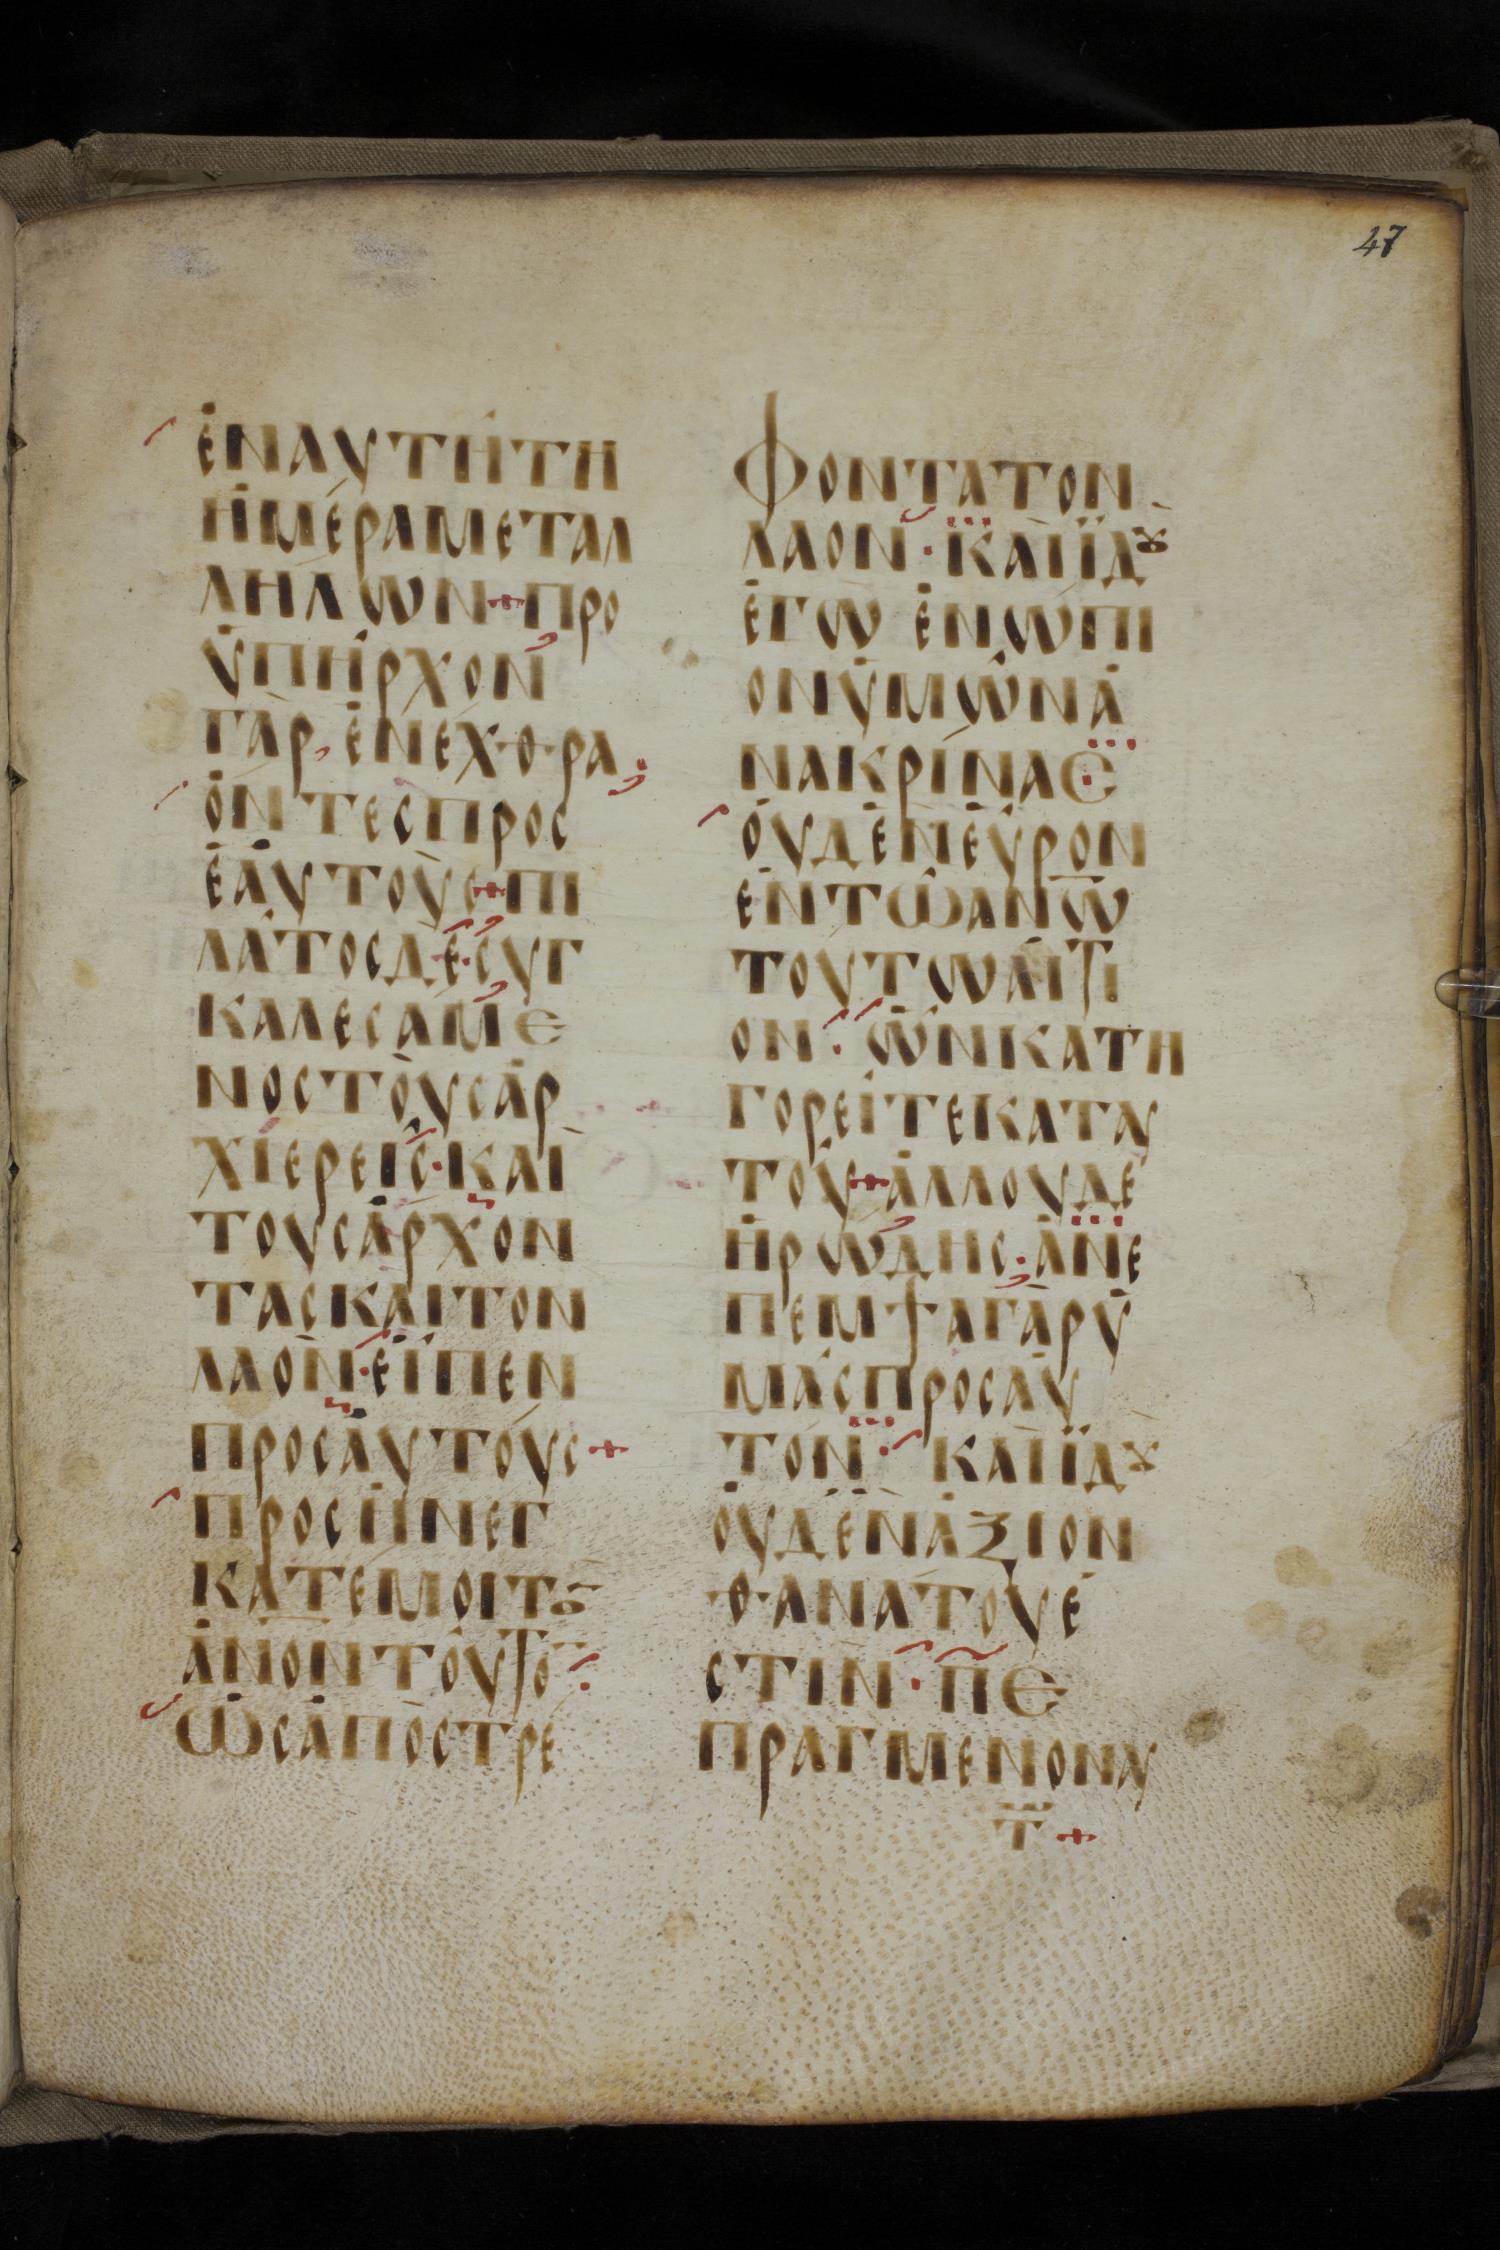 47
ἐναυτῆτῆ
ἡμέραμεταλ
λήλων+προ
ϋπῆρχον
γὰρ, ἐνέχθρᾳ
ὄντεςπρος
ἑαυτοὺς+πι
λάτοςδὲ·συγ
καλεσάμε
νοςτοὺςἀρ
χιερεῖς·καὶ
τουςἄρχον
τας καὶ τον
λαὸν·εἶπεν
προςαὐτούς+
προσηνέγ
κατεμοιτȣ
ἀνὸντοῦτο
ὡςἀποστρέ
φονταπτον
λαον·καὶϊδȣ
ἐγὼ ἐνώπι
ονὑμῶνἀ
νακρίνας
οὐδὲνεὗρον
ἐντῶανω
τουτωαἴτι
ον·ὧνκατη
γορεῖτεκαταυ
τοῦ+ἀλλουδε
ἡρώδης·ἀνέ
πεμψαγὰρὑ
μάςπροςαυ
τόν·καὶϊδȣ
οὐδὲνἄξιον
θανάτουἐ
στὶν·πε
πραγμενοναυ
τ+